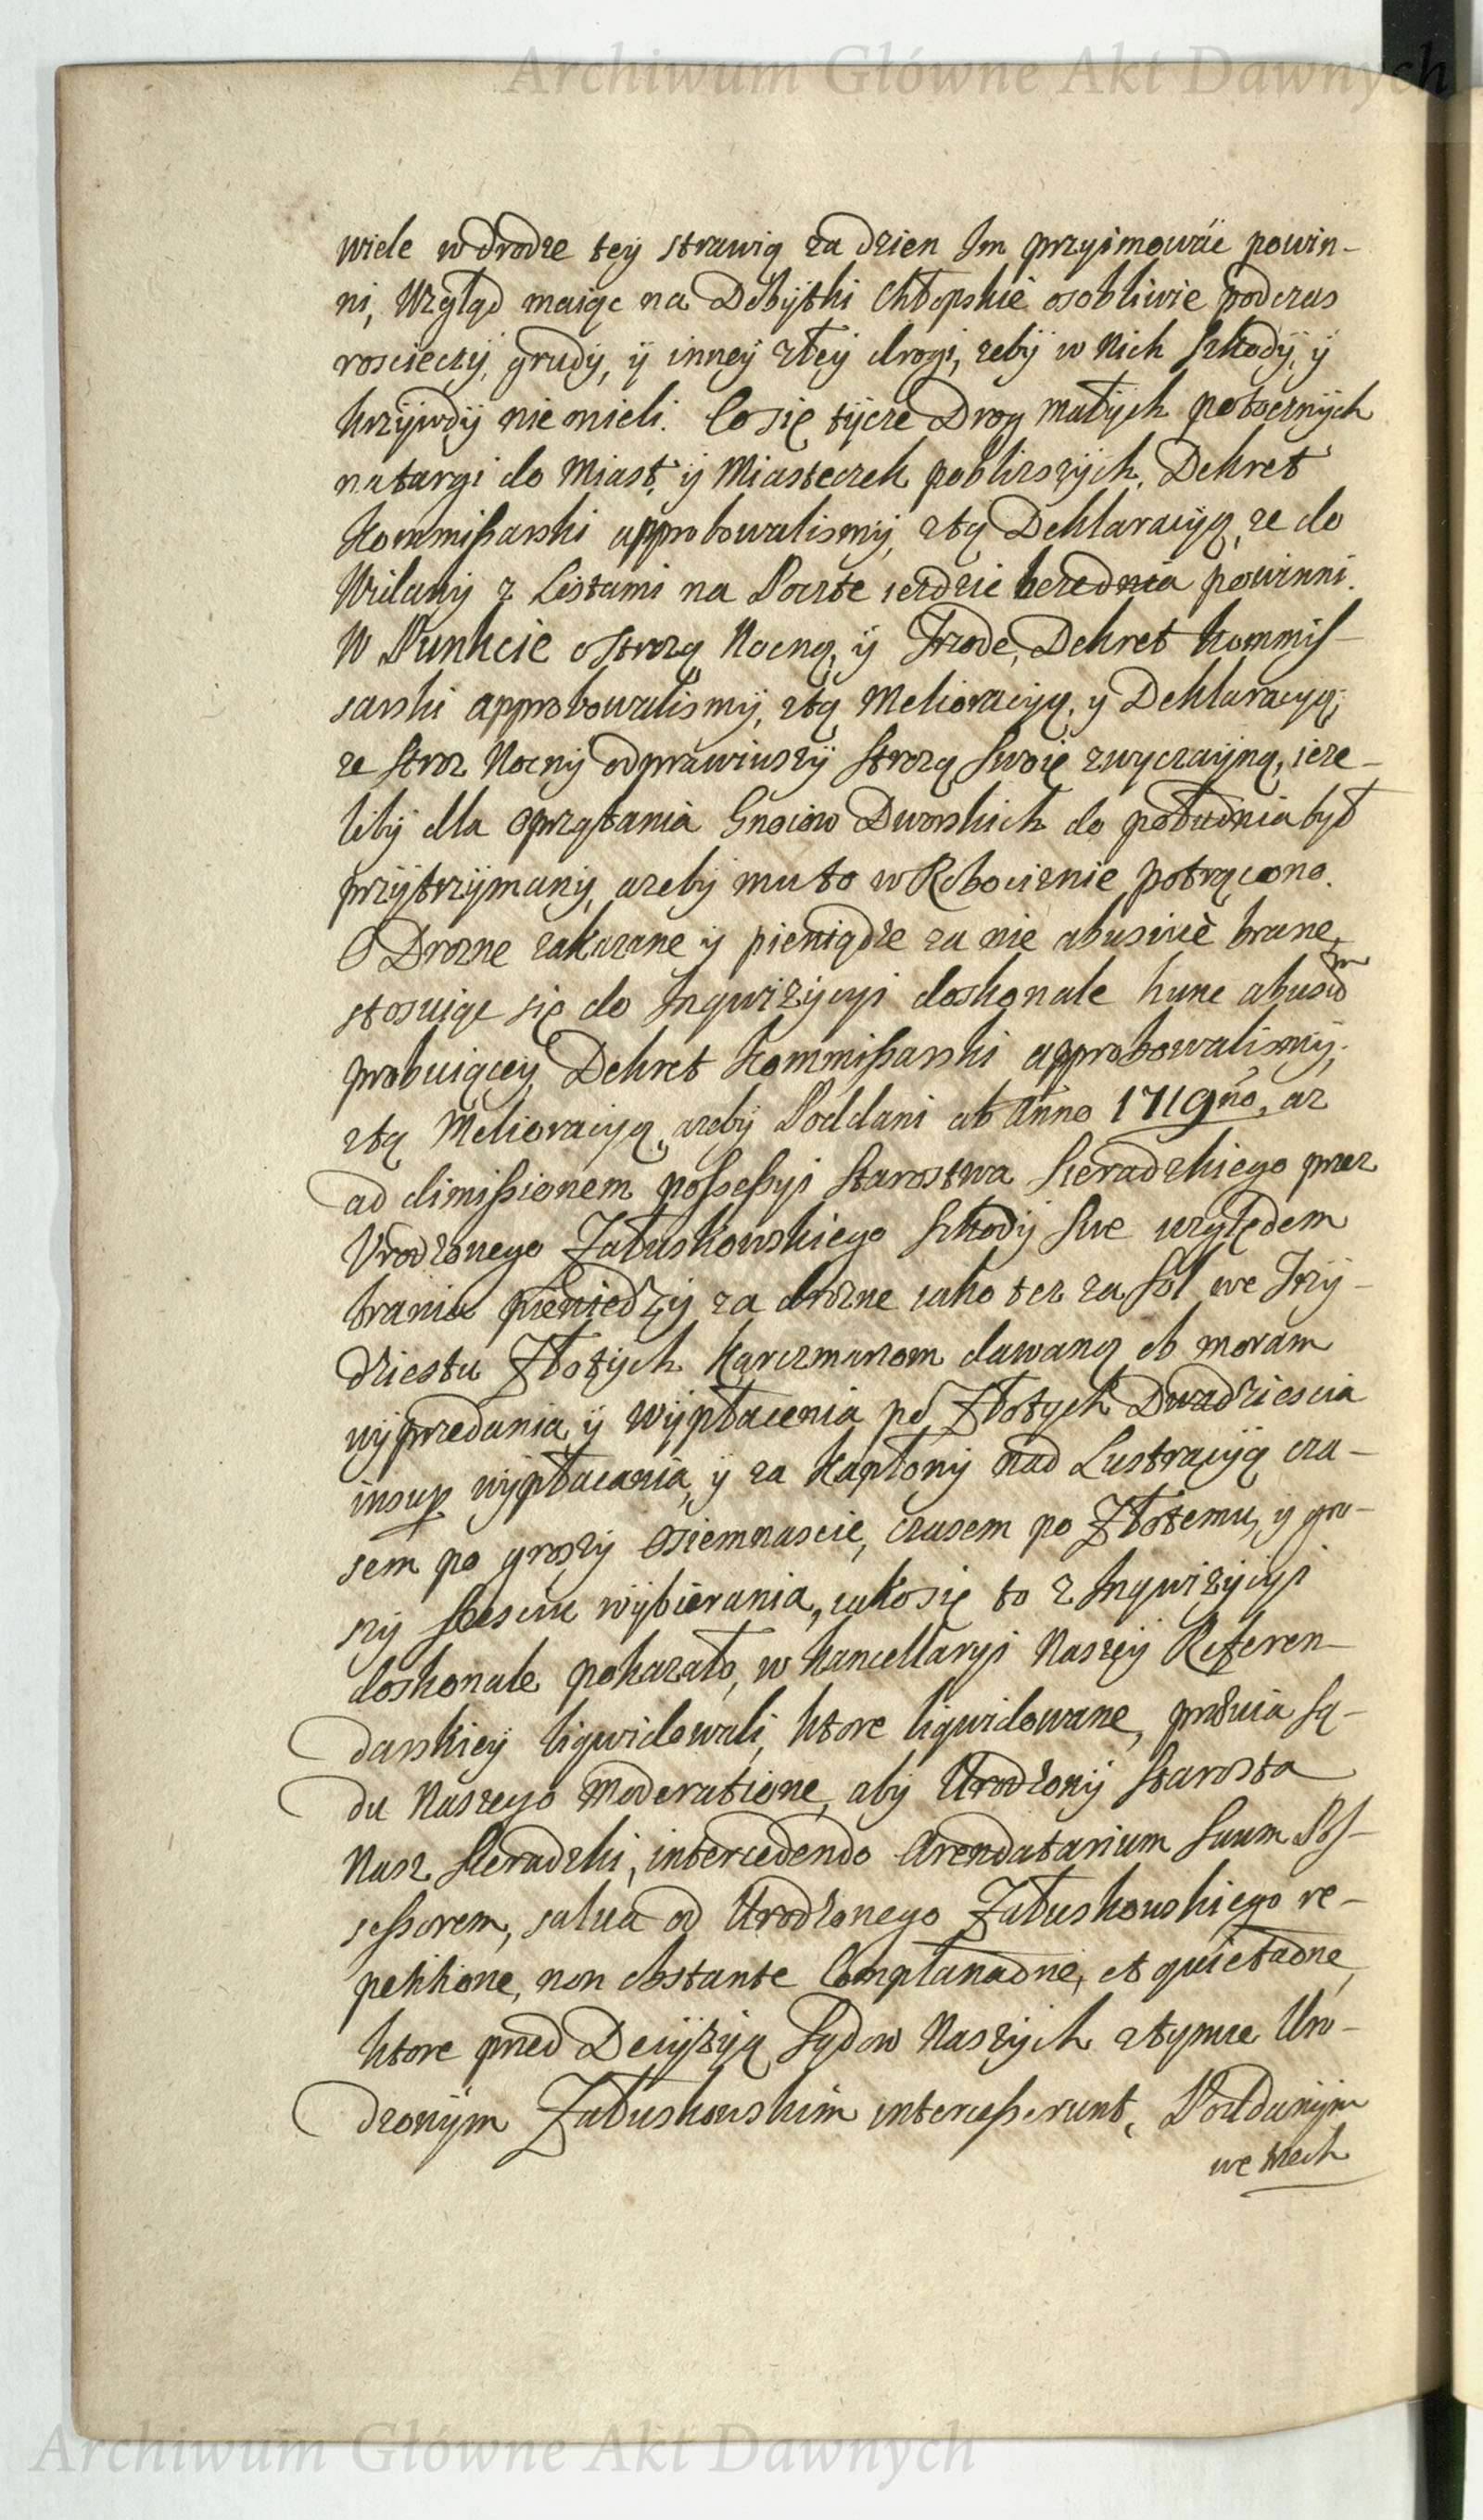 Archiwum Główne Akt Dawnych
wiele w drodze teÿ strawią za dzien Im przyimowáć powin-
ni, Wzgląd maiąc na Dobÿtki Chłopskie osobliwie podczas
roscieczÿ, grudÿ, ÿ inneÿ złeÿ drogi, zebÿ w nich Szkodÿ, ÿ
krzÿwdÿ nie mieli. Co się tÿcze Drog małÿch potocznÿch
na targi do Miast, ÿ Miasteczek poblizszÿch, Dekret
Kommißarski approbowalismÿ, ztą Deklaracyą, ze do
Widawÿ z Listami na Poczte iezdzić powinni.
W Punkcie o Strozą Nocną, ÿ Trzodę, Dekret Kommis-
sarski approbowalismÿ, ztą Melioracyą, y Deklaracyą;
ze Stroz Nocnÿ odprawiwszÿ Strozą Swoię zwyczaÿną, ieze-
libÿ dla oprzątania Gnoiow Dworskich do południa był
przÿtrzÿmanÿ, azebÿ mu to w Robociznie potrącono.
O Drozne zakazane ÿ pieniądze za nie abusivè brane,
stosuiąc się do Inqwizÿcyi doskonale hunc abusũm
probuiącey, Dekret Kommißarski approbowalismÿ,
ztą Melioracyą, azebÿ Poddani ab Anno 1719no, az
ad dimißionem poßeßyi Starostwa Sieradzkiego przez
Vrodzonego Załuskowskiego Szkodÿ Swe względem
brania pieniędzÿ za drozne iako tez za Sol we Trzÿ-
dziestu Złotÿch Karczmarzom dawaną ob moram
wÿprzedania, ÿ wÿpłacenia po Złotych Dwadziescia
insup wÿpłacania, ÿ za Kapłonÿ nad Lustracÿą cza-
sem po groszÿ osiemnascie, czasem po Złotemu, y gro-
szÿ szesciu wÿbierania, iako się to z Inqwizÿcyi
doskonale pokazało, w Kancellaryi Naszeÿ Referen-
darskieÿ liqwidowali, ktore liqwidowane, prævia Są-
du Naszego Moderatione, abÿ Urodzonÿ Starosta
Nasz Sieradzki, intercedendo Arendatarium Suum Pos-
seßorem, salva od Urodzonego Załuskowskiego re-
petitione, non obstante Complanaõne, et quietaõne,
ktore przed Decÿzÿą Sądow Naszÿch ztymze Uro-
dzonÿm Załuskowskim interceßerunt, Poddanÿm
we trzech
Archiwum Główne Akt Dawnych